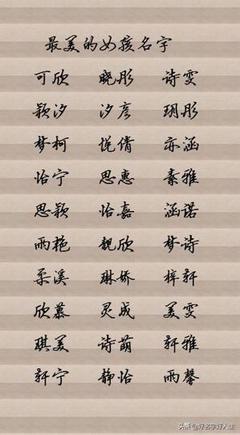 最美的女孩名字
可欣 晓彤 诗雯
颖汐 汐彦 玥彤
梦柯 悦倩 亦涵
怡宁 思惠 素雅
思颖 怡嘉 涵诺
雨艳 靓欣 梦诗
柔溪 琳娇 梓轩
欣慕 灵成 美雯
琪美 诗萌 轩雅
轩宁 静怡 雨馨